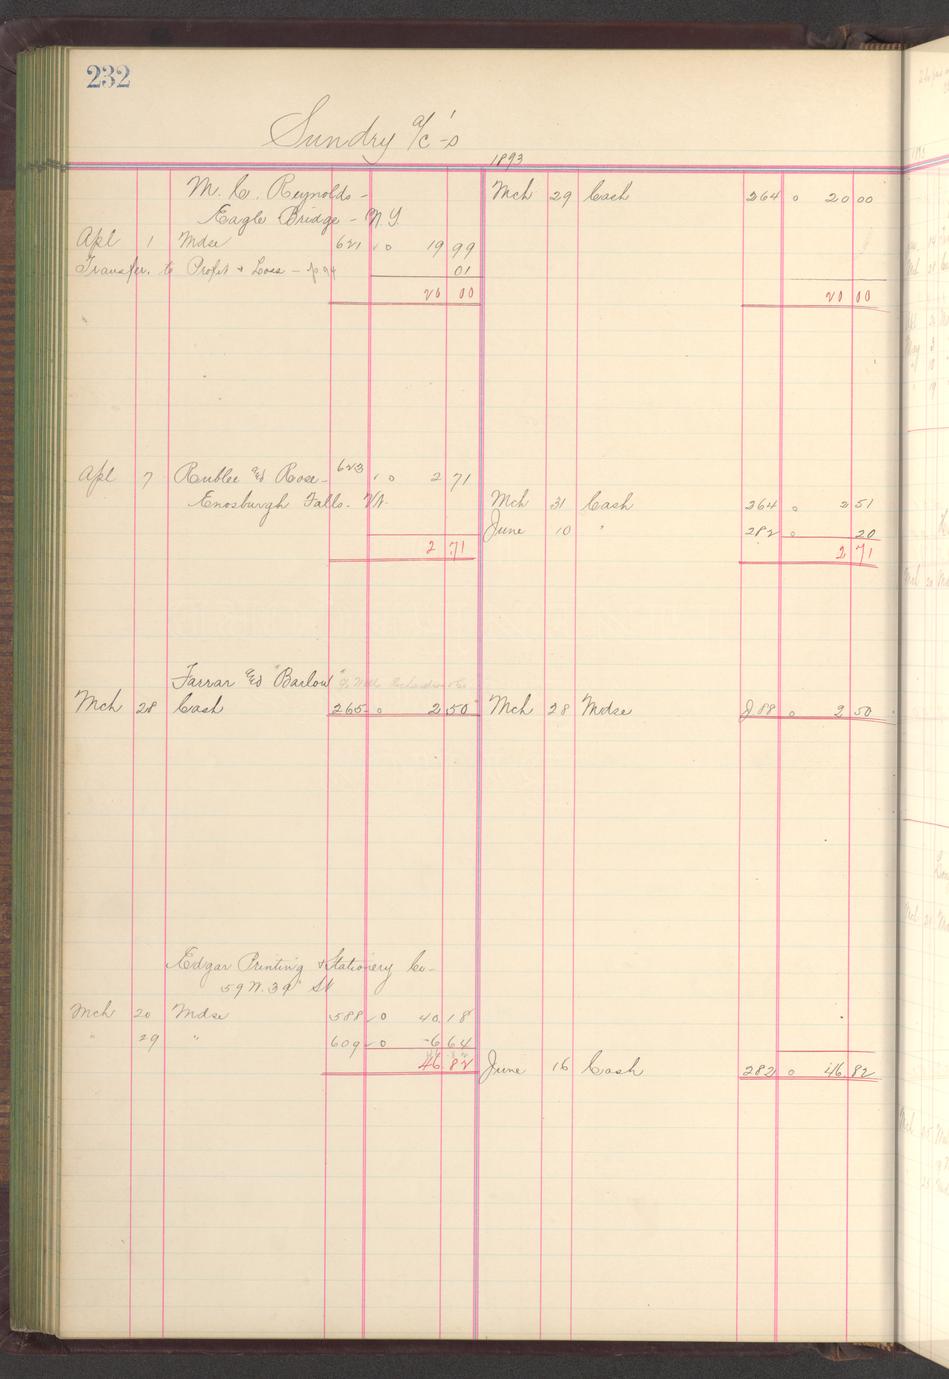 232
Sundry a/c's
1893
M. C. Reynolds -
Eagle Bridge - N.Y.
Mch 29 Cash 264 0 20 00
Apl 1 Mdse 621 0 19 99
Transfer. to Profit & Loss - 01
20 00 20 00
Apl 7 Rublee and Rose - 623 0 2 71
Enosburgh Falls. Vt.
Mch 31 Cash 264 0 2 51
June 10 " 282 0 20
2 71 2 71
Farrar and "Barlow"
Mch 28 Cash 265 0 2 50 Mch 28 Mdse J 88 0 2 50
Edgar Printing & Stationery Co -
59 W. 39" St
Mch 20 Mdse 588 0 40 18
" 29 " 609 0 6 64
46 82
June 16 Cash 282 0 46 82